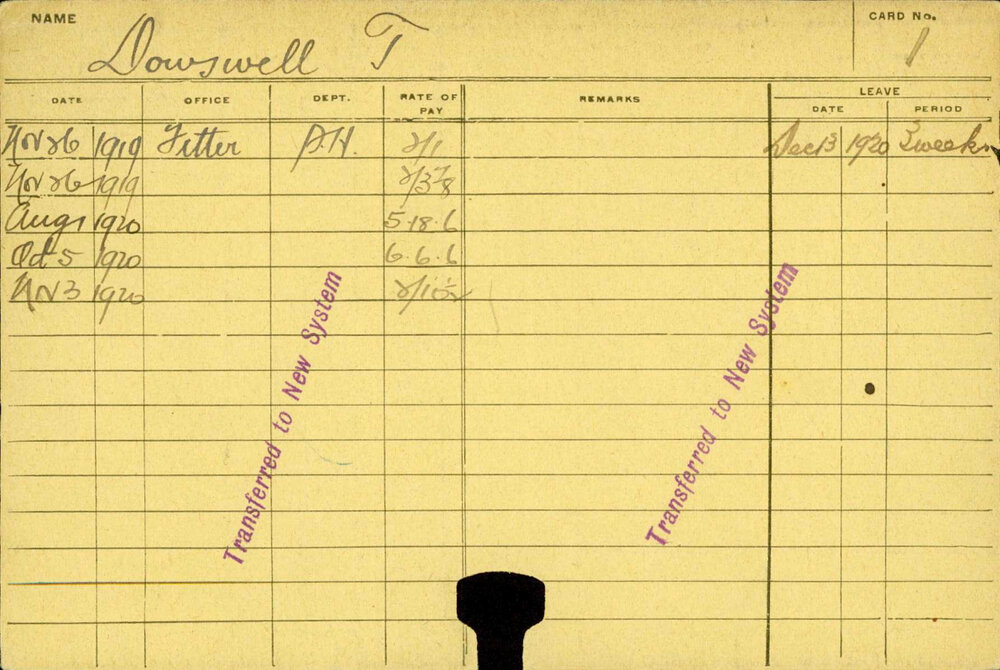 NAME CARD No.
Dowswell T 1
LEAVE
DATE OFFICE DEPT. RATE OF PAY REMARKS DATE PERIOD
Nov 26 1919 Fitter P.H. 2/1 Dec 13 1920 3 weeks
Nov 26 1919 2/3 7/8
Aug 1 1920 5-18-6
Oct 5 1920 6.6.6
Nov 3 1920
Transferred to New System
Transferred to New System